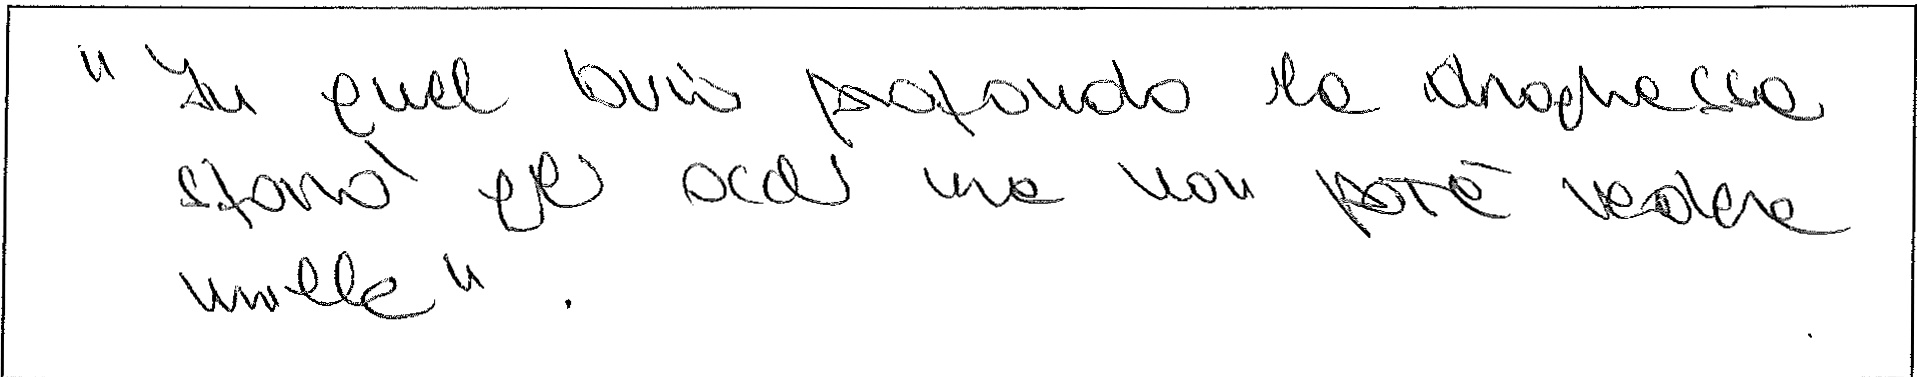 "In quel buio profondo la draghessa
sforzò gli occhi ma non poté vedere
nulla".